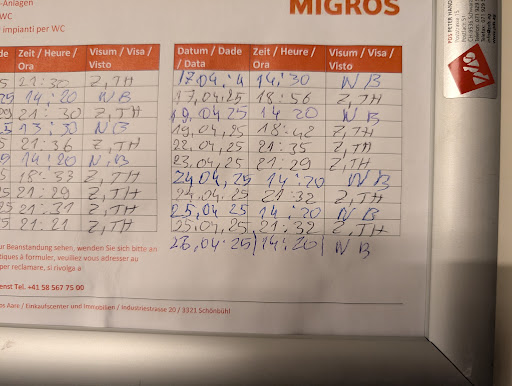 -Anlagen
WC
r impianti per WC
MIGROS
de Zeit / Heure / Ora Visum / Visa / Visto
Datum / Dade / Data Zeit / Heure / Ora Visum / Visa / Visto
5 21:30 Z,TH
25 14:20 NB
21:30 Z,TH
13:30 NB
5 21:36 Z,TH
14:20 N.B
5 18:33 Z,TH
5 21:29 Z,TH
25 21:31 Z,TH
25 21:21 Z,TH
17.04. 14,30 NB
17,04,25 18:56 Z,TH
19,04 25 14 20 NB
19,04,25 18:42 Z,TH
22,04,25 21:35 Z,TH
23,04,25 21:29 Z,TH
24 04, 25 14:20 NB
24,04,25 21:32 Z,TH
25,04 25 14:20 NB
25,04,25 21:32 Z,TH
26,04 25 14:20 NB
ur Beanstandung sehen, wenden Sie sich bitte an
tiques à formuler, veuillez vous adresser au
per reclamare, si rivolga a
enst Tel. +41 58 567 75 00
os Aare / Einkaufscenter und Immobilien / Industriestrasse 20 / 3321 Schönbühl
POS PETER HAND